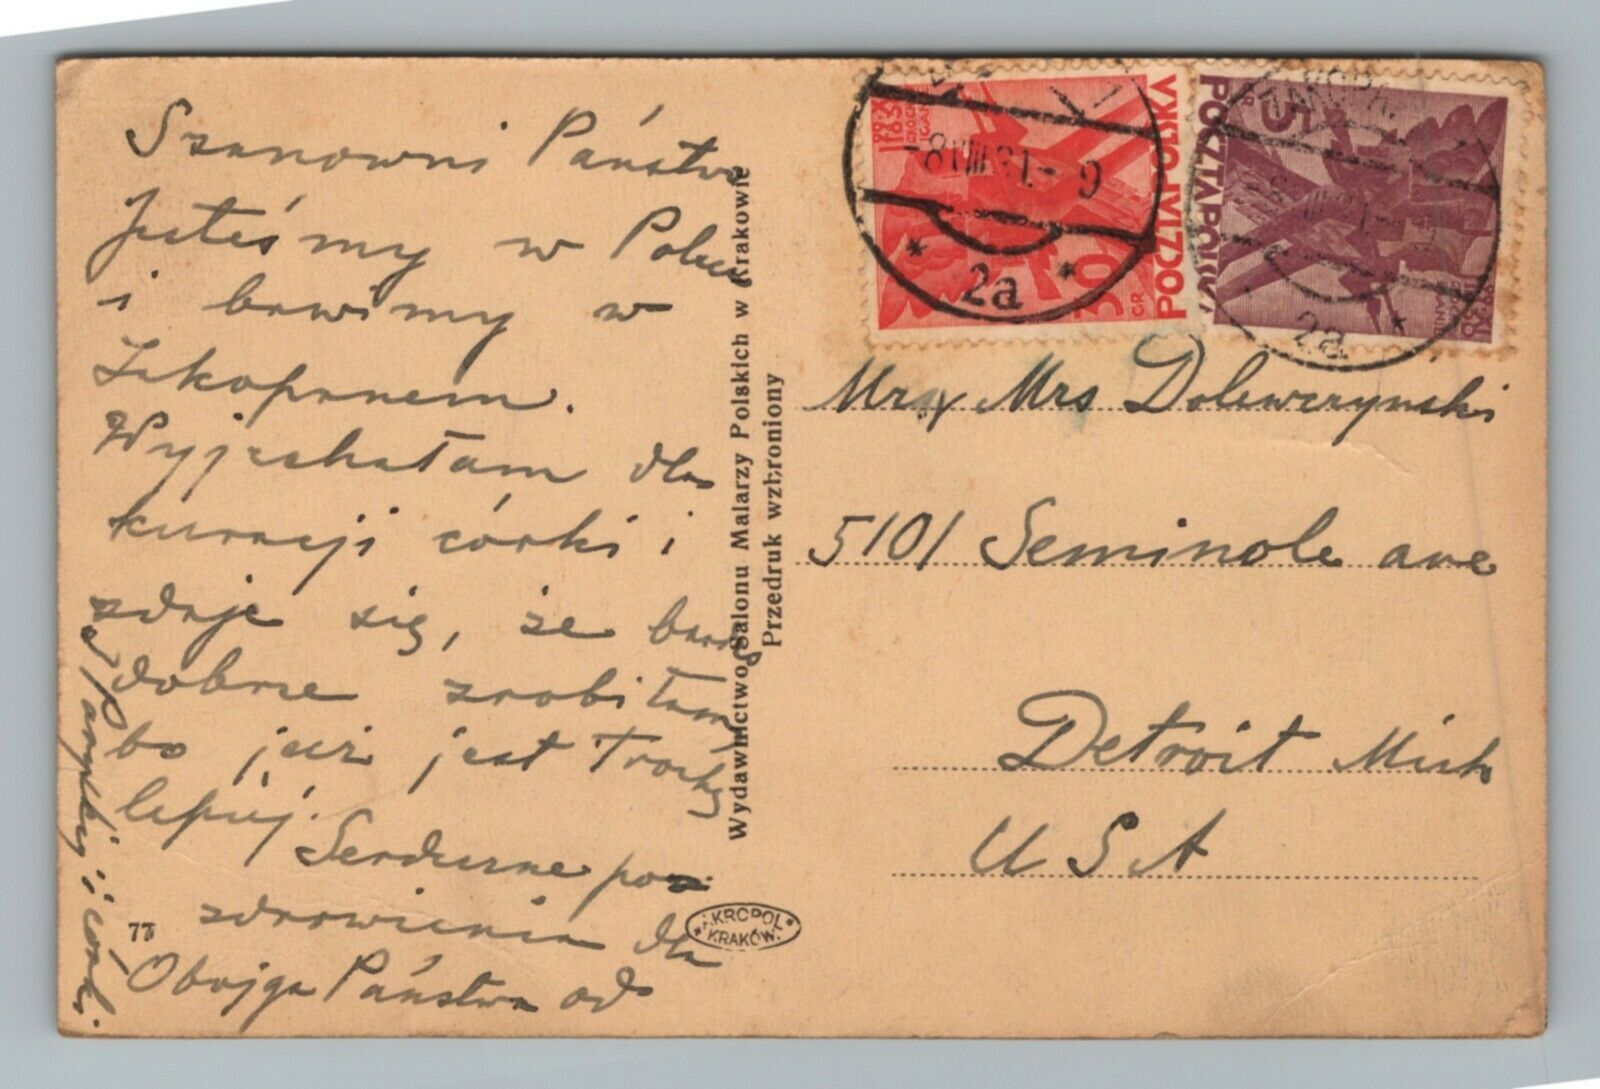 Szanowni Państwo
Jesteśmy w Polsce
i bawimy w
Zakopanem.
Wyjechałam dla
kuracji córki i
zdaje się, że bardzo
dobrze zrobiłam,
bo już jest trochę
lepiej.
Serdeczne po-
zdrowienia dla
Obojga Państwa od
i córki.
77
Wydawnictwo Salonu Malarzy Polskich w Krakowie
Przedruk wzbroniony
AKROPOL
KRAKÓW
POCZTA POLSKA
30
GR
-8 VIII 31.-9
* 2a *
POCZTA POLSKA
15
GR
2a *
Mr & Mrs Dolewczynski
5101 Seminole ave
Detroit Mich
USA